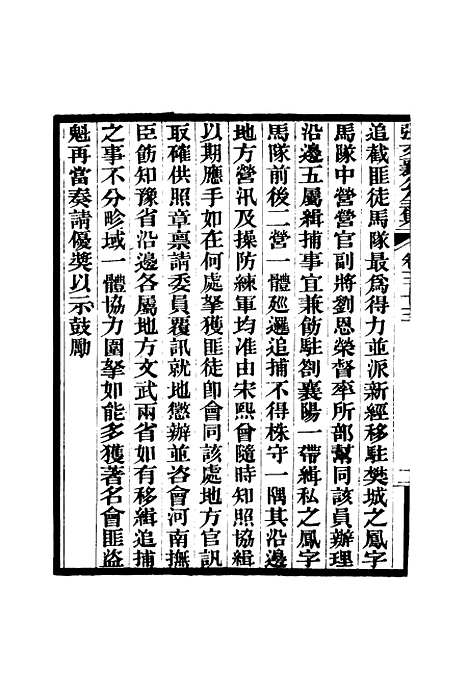 張文襄公全集 卷三十三
追截匪徒馬隊最爲得力並派新經移駐樊城之鳳字
馬隊中營營官副將劉恩榮督率所部幫同該員辦理
沿邊五屬緝捕事宜兼飭駐劄襄陽一帶緝私之鳳字
馬隊前後二營一體廵邏追捕不得株守一隅其沿邊
地方營汛及操防練軍均准由宋熙曾隨時知照協緝
以期應手如在何處拏獲匪徒卽會同該處地方官訊
取確供照章稟請委員覆訊就地懲辦並咨會河南撫
臣飭知豫省沿邊各屬地方文武兩省如有移緝追捕
之事不分畛域一體協力圍拏如能多獲著名會匪盜
魁再當奏請優奬以示鼓勵